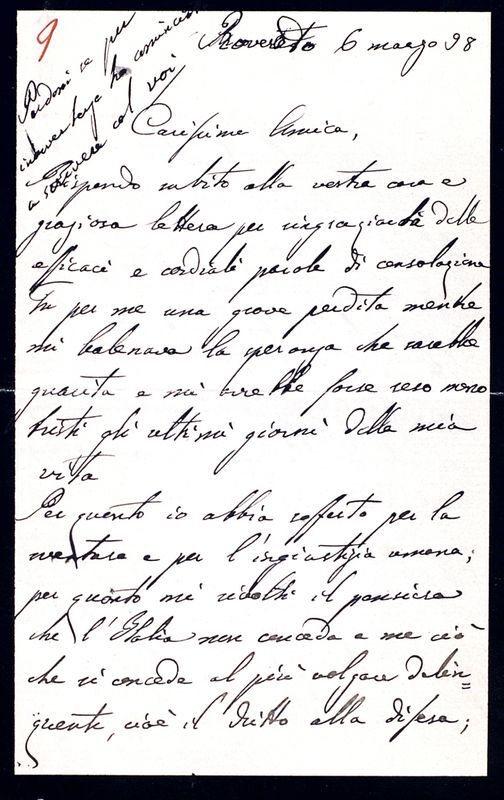 9
Perdoni se per
inavvertenza ho cominciato
a scrivere col voi
Rovereto 6 marzo 98
Carissima Amica,
Rispondo subito alla vostra cara e
graziosa lettera per ringraziarLa delle
efficaci e cordiali parole di consolazione
Fu per me una grave perdita mentre
mi balenava la speranza che sarebbe
guarita e mi avrebbe forse reso meno
tristi gli ultimi giorni della mia
vita
Per quanto io abbia sofferto per la
sventura e per l'ingiustizia umana;
per quanto mi rivolti il pensiero
che l'Italia non conceda a me ciò
che si concede al più volgare delin=
quente, cioè il dritto alla difesa;